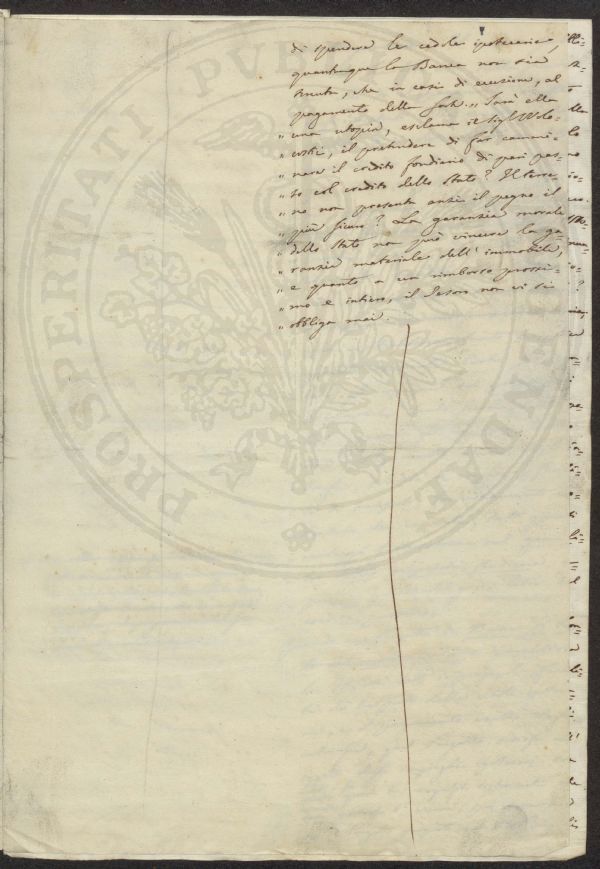 di spendere le cedole ipotecarie,
quantunque la Banca non sia
tenuta, che in casi di eccezione, al
pagamento delle " Sarà ella
" una utopia, esclama il Sigr Wolo-
" wski, il pretendere di far cammi-
" nare il credito fondiario di pari pas-
" so col credito dello Stato? Il terre-
" no non presenta anzi il pegno il
" più sicuro? La garanzia morale
" dello Stato non può vincere la ga-
" ranzia materiale dell'immobile,
" e quanto a un rimborso prossi-
" mo e intiero, il Tesoro non vi si
" obbliga mai.
PROSPERITATI PVBLICAE AVGENDAE